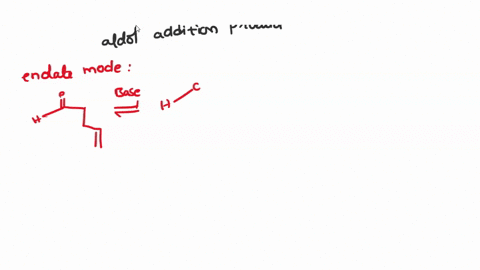 aldol addition
enolate mode :
Base
O
H
H C